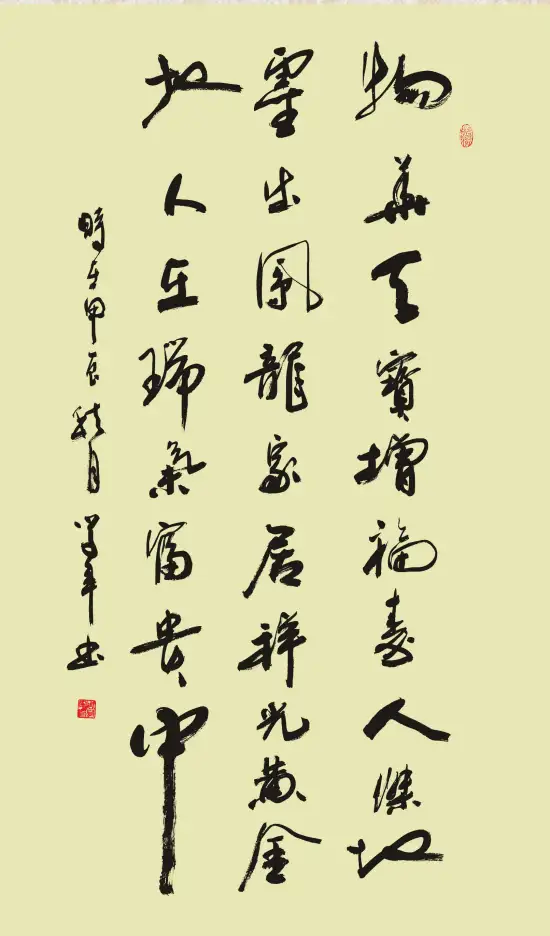 物華天寶增福壽人傑地
靈出鳳龍家居祥光藏金
地人在瑞氣富貴中
時在甲辰秋月學軍書